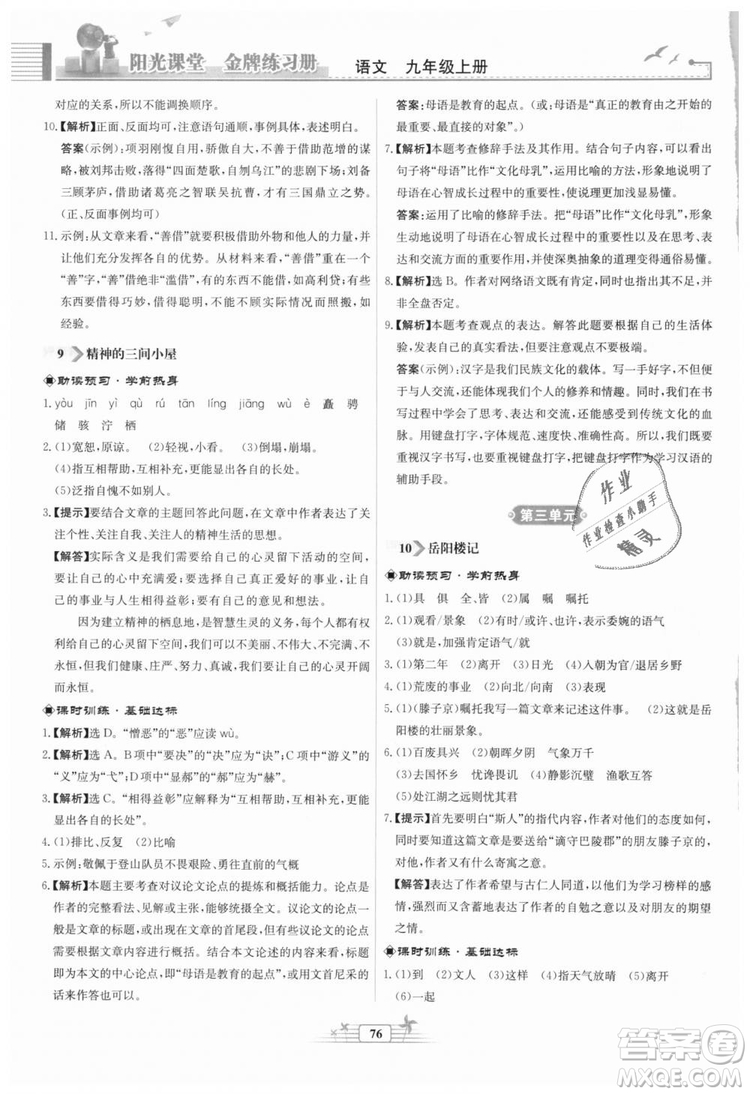 阳光课堂 金牌练习册 语文 九年级上册
对应的关系,所以不能调换顺序。
10.【解析】正面、反面均可,注意语句通顺,事例具体,表述明白。
答案(示例):项羽刚愎自用,骄傲自大,不善于借助他人的智慧,被刘邦击败,落得“四面楚歌,自刎乌江”的悲剧下场;刘备三顾茅庐,借助诸葛亮之智联吴抗曹,才有了三国鼎立之势。
(正、反面例均可)
11. 示例:从文章来看,“善借”就是善于借助外物和他人的力量,并让他们充分发挥各自的优势。而材料则更进一步,关键在一个“善”字,“善借”绝非“滥借”,犹如高利贷。有条件地借,方能使善借者得以巧妙,借得不留痕迹,而不是一味地照搬,如经验。
9 精神的三间小屋
助读预习·学前热身
1. yòu jīn yì qù rú tān líng jiāng wù è 矗 骋
储 骇 泞 栖
2. (1)宽恕,原谅。 (2)轻视,小看。 (3)倒塌,崩塌。
(4)指互相帮助,互相补充,更能显出各自的长处。
(5)泛指才能不如别人。
3.【提示】根据文章的主题回答此问题,在文章中作者表达了关注个性、关注自我、关注人类精神生活的思想。
【解答】实际含义是我们要为自己的心灵留下空间,让自己的心中充满爱;要选择自己真正爱好的事业,让自己的事业与自己的心灵相和谐;让自己的心灵真正属于自己,能自由地思考。
因为建立精神的栖息地,是智慧生灵的义务,每个人都有如此的权利给自己的心灵留下空间。我们可以不美丽、不伟大、不永恒,但我们健康、庄严、努力,我们必须把自己的心灵开阔到永恒。
课时训练·基础达标
1.【解析】选D。“憎恶”的“恶”应读wù。
2.【解析】选A。B项中“要决”的“决”应为“诀”;C项中“游义”的“义”应为“弋”;D项中“显郝”的“郝”应为“赫”。
3.【解析】选C。“相得益彰”应解释为“互相帮助,互相补充,更能显出各自的长处”。
4. (1)排比、反复 (2)比喻
5. 示例:敬佩于登山队员不畏艰险、勇攀高峰的英雄气概
6.【解析】本题主要考查对议论文论点的提炼和概括能力。论点是作者的完整看法、见解或主张,能够统摄全文。议论文的论点有的是文章的标题,有的在文章的首尾段,有的在中间,有时需要根据文章内容进行概括。结合本文论述的内容来看,标题即为本文的中心论点,即“母语是教育的起点”,或文首尼采的话来作答也可以。
答案:母语是教育的起点。(或:母语是“真正的教育由之开始的最重要、最直接的对象”。)
7.【解析】本题考查修辞手法及其作用。结合句子内容,可以看出句子将“文化母语”比作“文化母乳”,运用比喻的方法,说明了母语在心智成长中的重要性,使说理更浅显易懂。
答案:运用了比喻的修辞手法。把“母语”比作“文化母乳”,形象生动地写出了母语在心智成长过程中的重要性,突出强调了母语与文化之间的关系,使深奥抽象的道理通俗易懂。
8.【解析】选B。作者对网络语文既有肯定,也指出其不足,并非全盘否定。
9.【解析】本题考查观点的表达。可以结合自己的生活体验,从正反两方面来考虑此问题,不要极端。
答案(示例):汉字是我们民族文化的载体。写一手好字,不仅便于与人交流,还能体现个人的修养和情趣。通过书写,还能让人在书写中学会思考、感受到传统文化的血脉。用键盘打字,规范、速度快、准确性高。所以我们既要重视汉字书写,又要重视把键盘打字作为学习汉语的辅助手段。
第三单元
10 岳阳楼记
助读预习·学前热身
1. (1)具 俱 全、皆 (2)属 嘱 嘱托
2. (1)观看/景象 (2)有时/或许,表示委婉的语气
(3)就/是,加强肯定语气/就
3. (1)第二年 (2)离开 (3)日光 (4)人朝为官/退居乡野
4. (1)荒废的事业 (2)向北/向南 (3)表现
5. (1)(滕子京)嘱托我写一篇文章来记述这件事。 (2)这是岳阳楼的壮丽景象。
6. (1)百废具兴 (2)朝晖夕阴 气象万千
(3)去国怀乡 忧谗畏讥 (4)静影沉璧 渔歌互答
(5)处江湖之远则忧其君
7.【提示】首先要明白“斯人”的指代意义,作者对他们的态度如何,同时要知道这篇文章是应受“谪守巴陵郡”的朋友滕子京的嘱托而写的。
【解答】表达了作者希望与古仁人同道,以他们为学习榜样的感情,强烈而又含蓄地表达了作者的自勉之意和对朋友的期望之情。
课时训练·基础达标
1. (1)到 (2)文人 (3)这 (4)指天气放晴 (5)消散
(6)一起
76
作业
作业检查小助手
精灵
答案圈
MXQE.COM